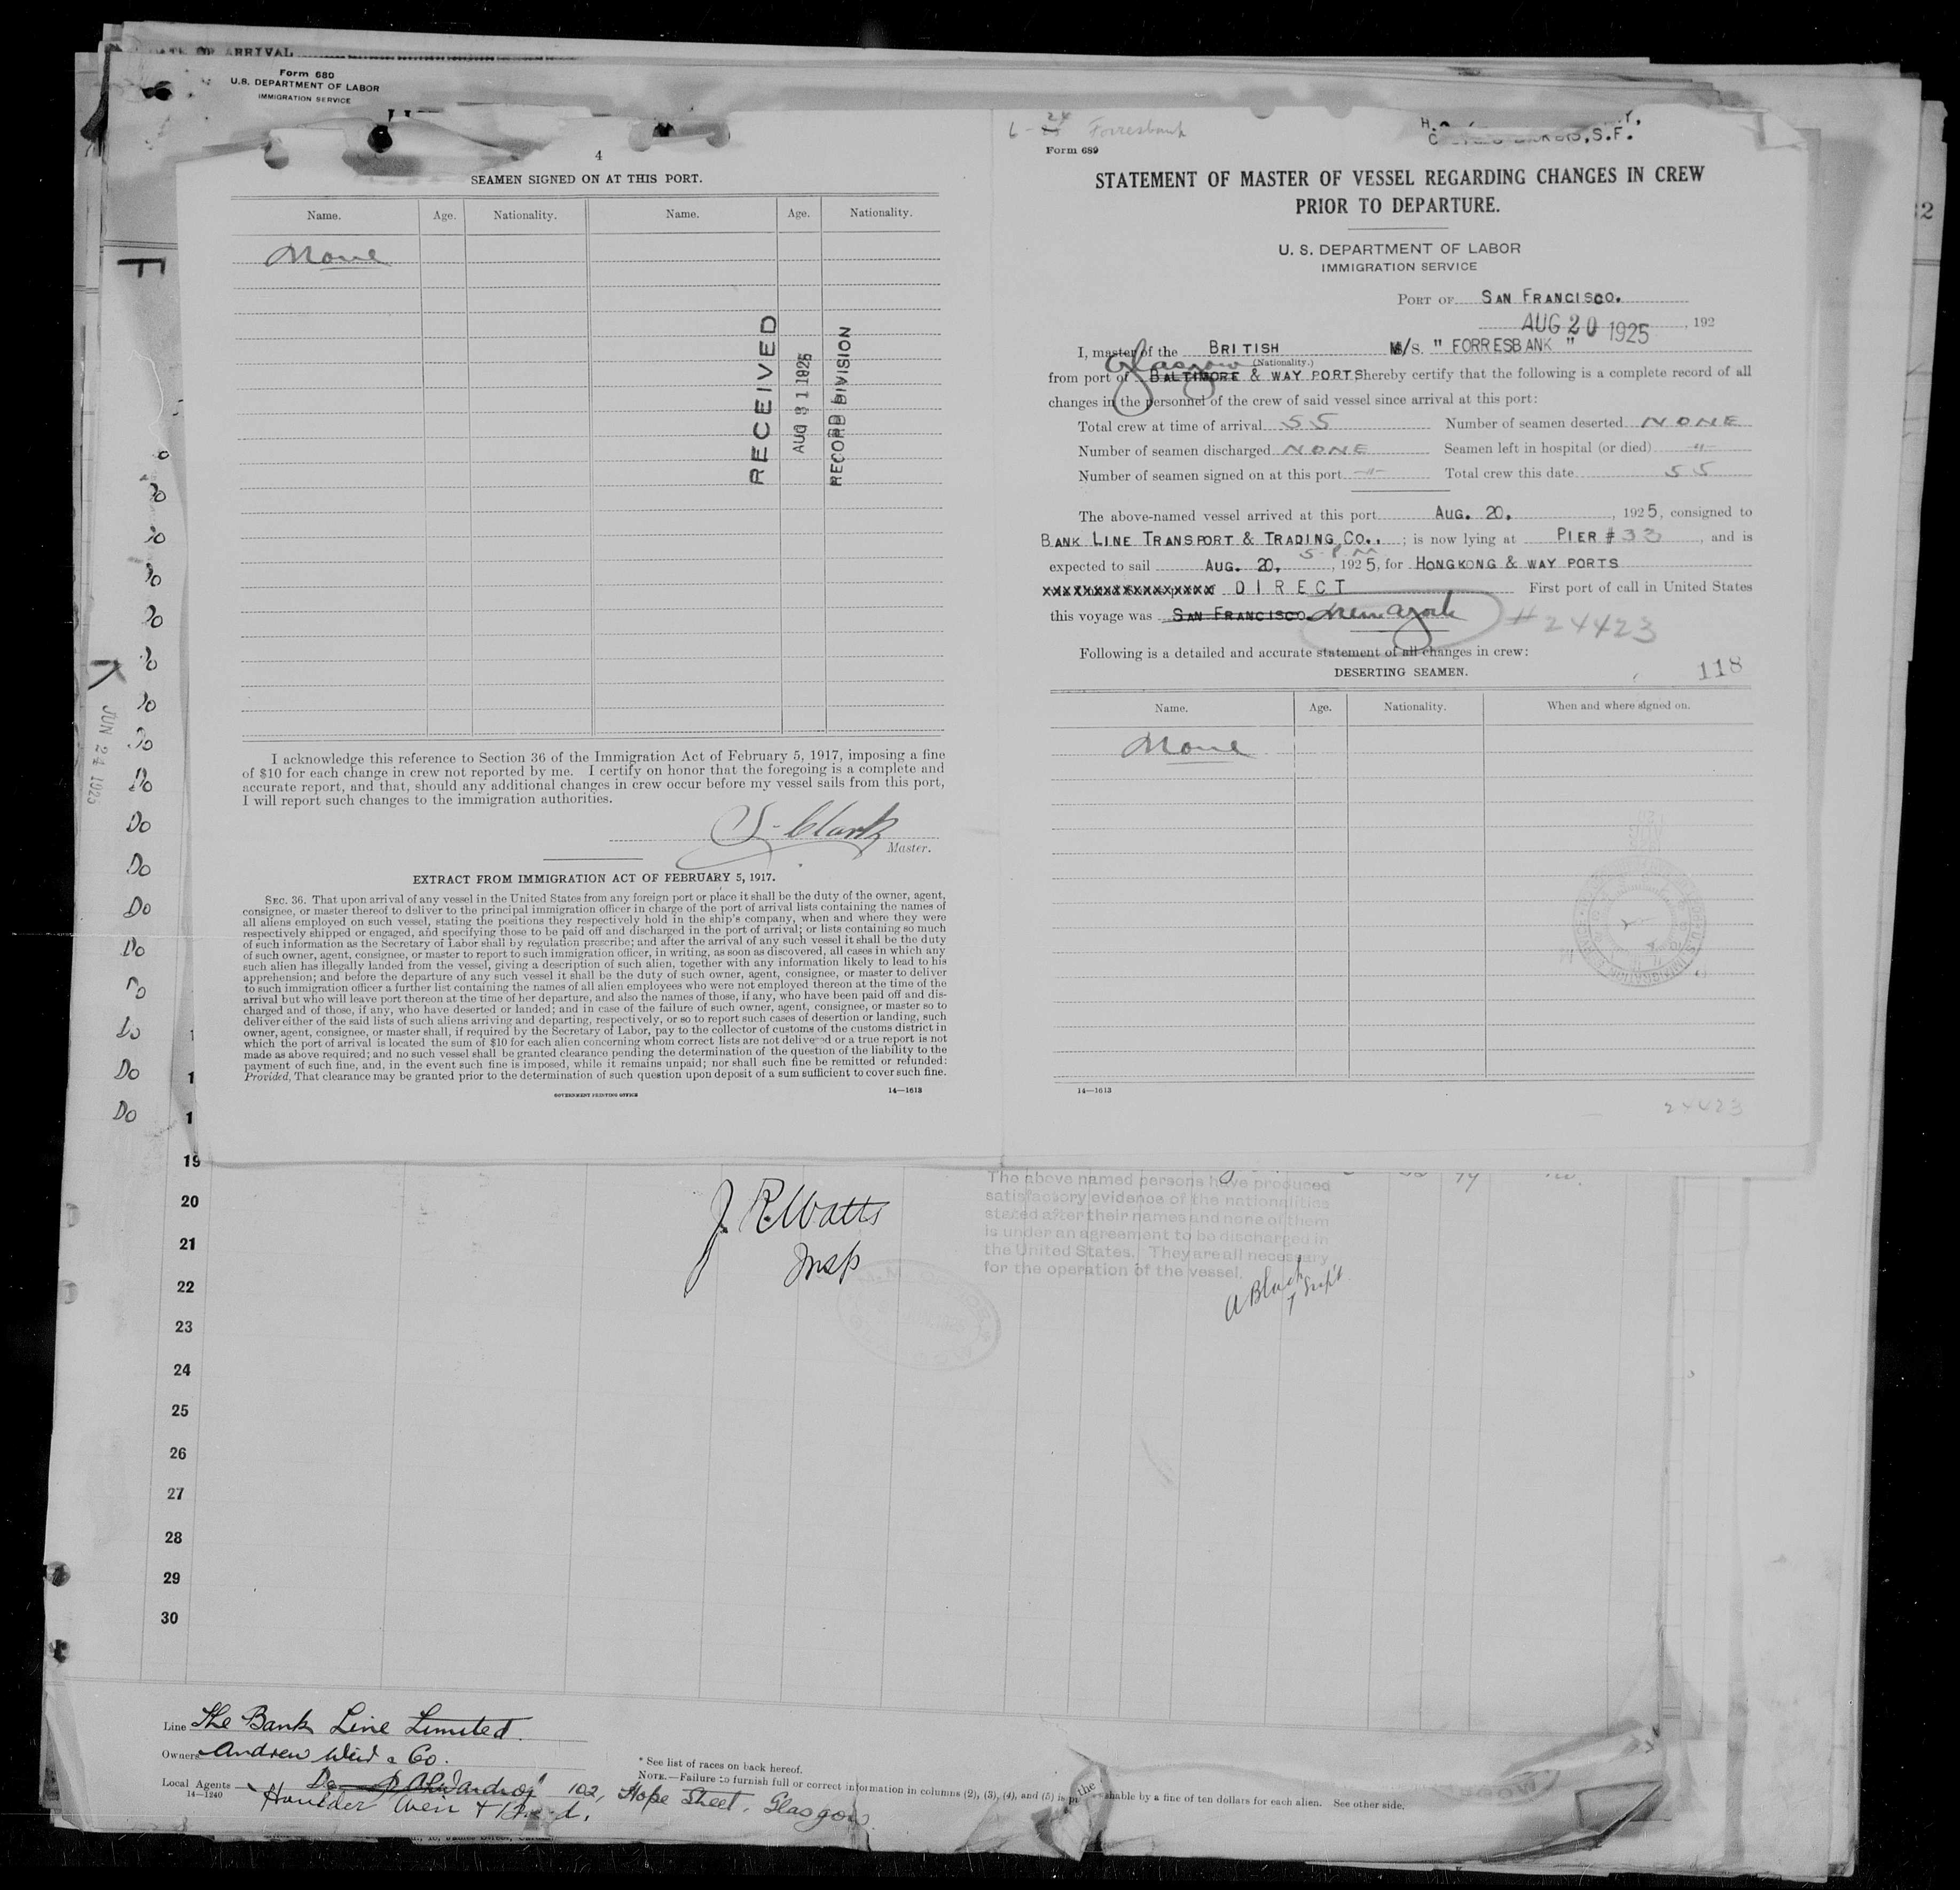 Form 680
U.S. DEPARTMENT OF LABOR
IMMIGRATION SERVICE
4
SEAMEN SIGNED ON AT THIS PORT.
Name. Age. Nationality. Name. Age. Nationality.
None
RECEIVED
AUG 31 1925
RECORD DIVISION
I acknowledge this reference to Section 36 of the Immigration Act of February 5, 1917, imposing a fine
of $10 for each change in crew not reported by me. I certify on honor that the foregoing is a complete and
accurate report, and that, should any additional changes in crew occur before my vessel sails from this port,
I will report such changes to the immigration authorities.
Clark
Master.
EXTRACT FROM IMMIGRATION ACT OF FEBRUARY 5, 1917.
SEC. 36. That upon arrival of any vessel in the United States from any foreign port or place it shall be the duty of the owner, agent,
consignee, or master thereof to deliver to the principal immigration officer in charge of the port of arrival lists containing the names of
all aliens employed on such vessel, stating the positions they respectively hold in the ship's company, when and where they were
respectively shipped or engaged, and specifying those to be paid off and discharged in the port of arrival; or lists containing so much
of such information as the Secretary of Labor shall by regulation prescribe; and after the arrival of any such vessel it shall be the duty
of such owner, agent, consignee, or master to report to such immigration officer, in writing, as soon as discovered, all cases in which any
such alien has illegally landed from the vessel, giving a description of such alien, together with any information likely to lead to his
apprehension; and before the departure of any such vessel it shall be the duty of such owner, agent, consignee, or master to deliver
to such immigration officer a further list containing the names of all alien employees who were not employed thereon at the time of the
arrival but who will leave port thereon at the time of her departure, and also the names of those, if any, who have been paid off and dis-
charged and of those, if any, who have deserted or landed; and in case of the failure of such owner, agent, consignee, or master so to
deliver either of the said lists of such aliens arriving and departing, respectively, or so to report such cases of desertion or landing, such
owner, agent, consignee, or master shall, if required by the Secretary of Labor, pay to the collector of customs of the customs district in
which the port of arrival is located the sum of $10 for each alien concerning whom correct lists are not delivered or a true report is not
made as above required; and no such vessel shall be granted clearance pending the determination of the question of the liability to the
payment of such fine, and, in the event such fine is imposed, while it remains unpaid; nor shall such fine be remitted or refunded:
Provided, That clearance may be granted prior to the determination of such question upon deposit of a sum sufficient to cover such fine.
GOVERNMENT PRINTING OFFICE 14—1613
6-24 Forresbank
Form 689
S.F.
STATEMENT OF MASTER OF VESSEL REGARDING CHANGES IN CREW
PRIOR TO DEPARTURE.
U. S. DEPARTMENT OF LABOR
IMMIGRATION SERVICE
PORT OF SAN FRANCISCO.
AUG 20 1925, 192
I, master of the BRITISH M/S. " FORRESBANK "
Glasgow (Nationality.)
from port of BALTIMORE & WAY PORTS hereby certify that the following is a complete record of all
changes in the personnel of the crew of said vessel since arrival at this port:
Total crew at time of arrival 55 Number of seamen deserted NONE
Number of seamen discharged NONE Seamen left in hospital (or died) -"-
Number of seamen signed on at this port -"- Total crew this date 55
The above-named vessel arrived at this port AUG. 20, , 1925, consigned to
BANK LINE TRANSPORT & TRADING CO., ; is now lying at PIER # 33, and is
5 P.M
expected to sail AUG. 20, , 1925, for HONGKONG & WAY PORTS
DIRECT First port of call in United States
this voyage was SAN FRANCISCO. New York #24423
Following is a detailed and accurate statement of all changes in crew:
118
DESERTING SEAMEN.
Name. Age. Nationality. When and where signed on.
None
14—1613
24423
JUN 24 1925
Do
Do
Do
Do
Do
Do
Do
Do
19
20
21
22
23
24
25
26
27
28
29
30
J. R. Watts
Insp
The above named persons have produced
satisfactory evidence of the nationalities
stated after their names and none of them
is under an agreement to be discharged in
the United States. They are all necessary
for the operation of the vessel.
Line The Bank Line Limited.
Owners Andrew Weir & Co.
Local Agents Do 102, Hope Street, Glasgow.
14—1240
Houlder Weir &
* See list of races on back hereof.
NOTE.—Failure to furnish full or correct information in columns (2), (3), (4), and (5) is punishable by a fine of ten dollars for each alien. See other side.